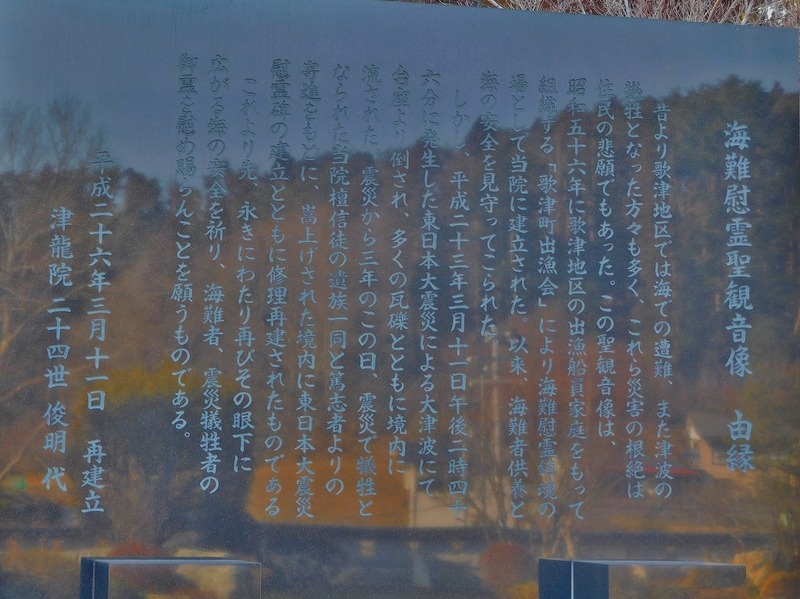 海難慰霊聖観音像　由縁
昔より歌津地区では海での遭難、また津波の
犠牲となった方々も多く、これら災害の根絶は
住民の悲願でもあった。この聖観音像は、
昭和五十六年に歌津地区の出漁船員家庭をもって
組織する「歌津町出漁会」により海難慰霊鎮魂の
場として当院に建立された。以来、海難者供養と
海の安全を見守ってこられた。
しかし、平成二十三年三月十一日午後二時四十
六分に発生した東日本大震災による大津波にて
台座より倒され、多くの瓦礫とともに境内に
流された。震災から三年のこの日、震災で犠牲と
なられた当院檀信徒の遺族一同と篤志者よりの
寄進をもとに、嵩上げされた境内に東日本大震災
慰霊碑の建立とともに修理再建されたものである
これより先、永きにわたり再びその眼下に
広がる海の安全を祈り、海難者、震災犠牲者の
御霊を慰め賜らんことを願うものである。
平成二十六年三月十一日　再建立
津龍院 二十四世 俊明 代